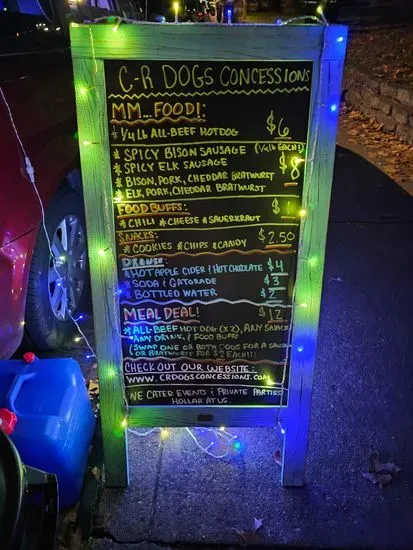 C-R DOGS CONCESSIONS
MM...FOOD!:
* 1/4 lb ALL-BEEF HOTDOG $6
* SPICY BISON SAUSAGE (1/4 lb EACH!)
* SPICY ELK SAUSAGE $8
* BISON, PORK, CHEDDAR BRATWURST
* ELK, PORK, CHEDDAR BRATWURST
FOOD BUFFS: $1
* CHILI * CHEESE * SAUERKRAUT
SNACKS: $2.50
* COOKIES * CHIPS * CANDY
DRINKS:
* HOT APPLE CIDER & HOT CHOCOLATE $4
* SODA & GATORADE $3
* BOTTLED WATER $2
MEAL DEAL! $12
* ALL-BEEF HOT DOG (x2), ANY SNACK
ANY DRINK, & FOOD BUFF
(SWAP ONE OR BOTH DOGS FOR A
OR BRATWURST FOR $2 EACH!)
CHECK OUT OUR WEBSITE:
WWW.CRDOGSCONCESSIONS.COM
WE CATER EVENTS & PRIVATE PARTIES
HOLLAR AT US.